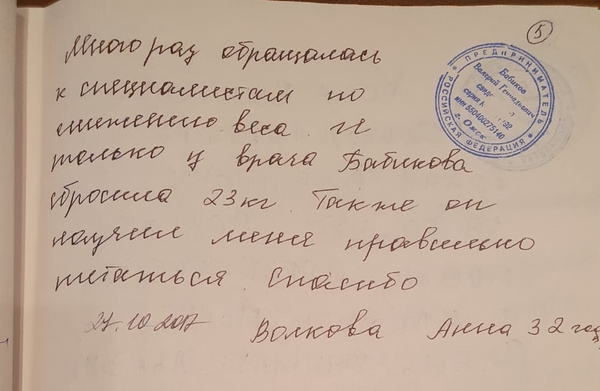 5
Много раз обращалась
к специалистам по
снижению веса. И
только у врача Бабикова
сбросила 23 кг. Также он
научил меня правильно
питаться. Спасибо
27.10.2017 Волкова Анна 32 год
ПРЕДПРИНИМАТЕЛЬ
РОССИЙСКАЯ ФЕДЕРАЦИЯ
Бабиков
Валерий Геннадьевич
серия
ИНН 550400275140
г. Омск